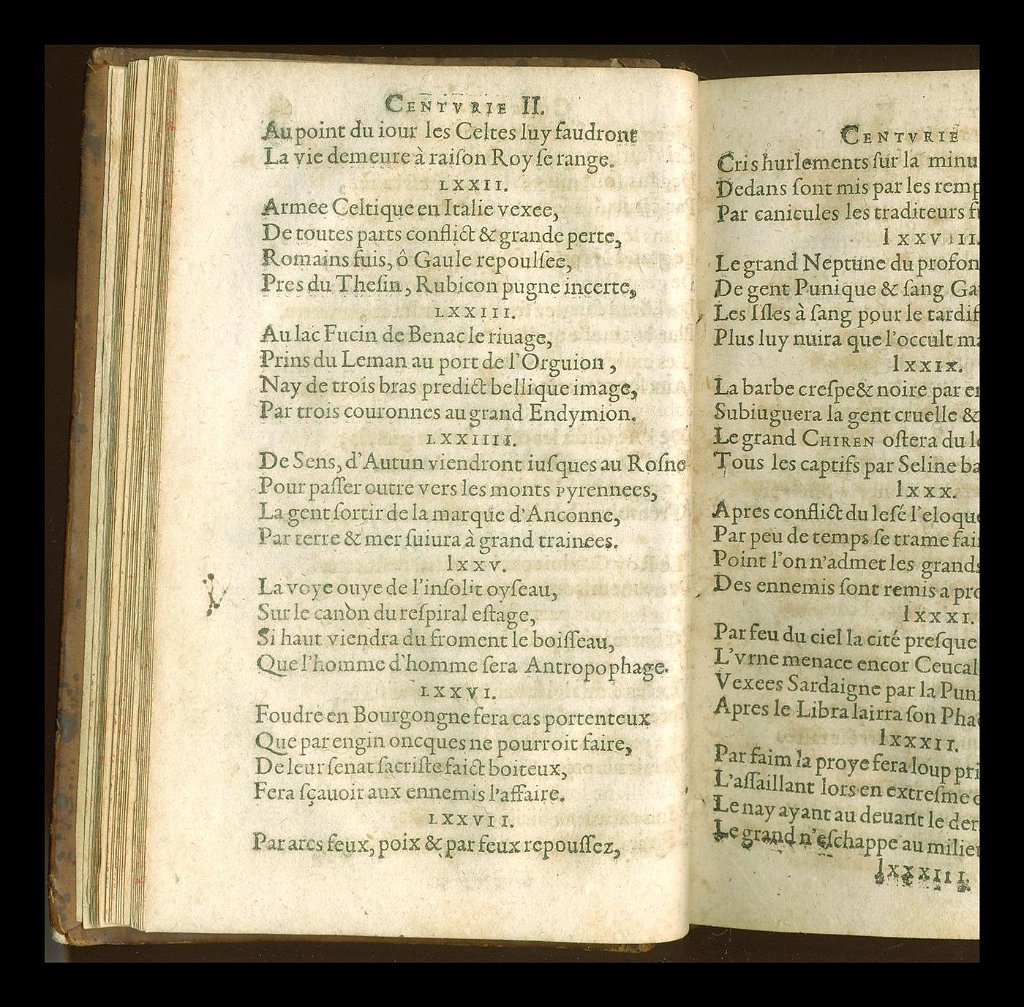 CENTVRIE II.
Au point du iour les Celtes luy faudront
La vie demeure à raiſon Roy ſe range.
LXXII.
Armee Celtique en Italie vexee,
De toutes parts conflict & grande perte,
Romains fuis, ô Gaule repoulſee,
Pres du Theſin, Rubicon pugne incerte,
LXXIII.
Au lac Fucin de Benac le riuage,
Prins du Leman au port de l'Orguion,
Nay de trois bras predict bellique image,
Par trois couronnes au grand Endymion.
LXXIIII.
De Sens, d'Autun viendront iuſques au Roſne
Pour paſſer outre vers les monts pyrennees,
La gent ſortir de la marque d'Anconne,
Par terre & mer ſuiura à grand trainees.
lxxv.
La voye ouye de l'inſolit oyſeau,
Sur le canon du reſpiral eſtage,
Si haut viendra du froment le boiſſeau,
Que l'homme d'homme ſera Antropophage.
LXXVI.
Foudre en Bourgongne fera cas portenteux
Que par engin oncques ne pourroit faire,
De leur ſenat ſacriſte faict boiteux,
Fera ſçauoir aux ennemis l'affaire.
LXXVII.
Par arcs feux, poix & par feux repouſſez,
CENTVRIE
Cris hurlements ſur la minu
Dedans ſont mis par les remp
Par canicules les traditeurs f
lxxviii.
Le grand Neptune du profon
De gent Punique & ſang Ga
Les Iſles à ſang pour le tardif
Plus luy nuira que l'occult ma
lxxix.
La barbe creſpe & noire par en
Subiuguera la gent cruelle &
Le grand CHIREN oſtera du lo
Tous les captifs par Seline ba
lxxx.
Apres conflict du leſé l'eloque
Par peu de temps ſe trame fai
Point l'on n'admet les grands
Des ennemis ſont remis a pro
lxxxi.
Par feu du ciel la cité preſque
L'vrne menace encor Ceucal
Vexees Sardaigne par la Puni
Apres le Libra lairra ſon Pha
lxxxii.
Par faim la proye fera loup pri
L'aſſaillant lors en extreſme
Le nay ayant au deuant le der
Le grand n'eſchappe au milieu
lxxxiii.